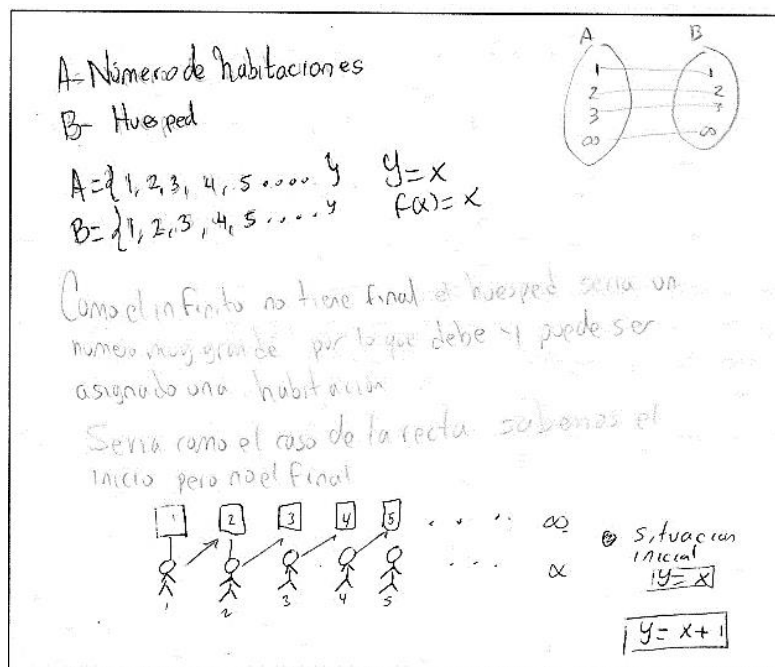 A- Número de habitaciones
B- Huesped
A={1, 2, 3, 4, 5 ..... }
B={1, 2, 3, 4, 5 ..... }
y=x
f(x)=x
A B
1 1
2 2
3 3
∞ ∞
Como el infinito no tiene final el huesped seria un
numero muy grande por lo que debe y puede ser
asignado una habitación
Seria como el caso de la recta sabemos el
inicio pero no el final
1 2 3 4 5 . . . . ∞
1 2 3 4 5 . . . ∝
situacion
inicial
y=x
y=x+1